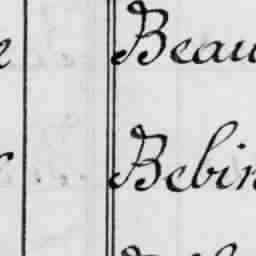 e Beau
r Bebin